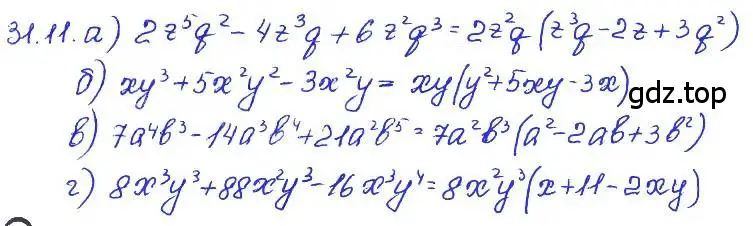 31.11. а) 2z⁵q² - 4z³q + 6z²q³ = 2z²q (z³q - 2z + 3q²)
б) xy³ + 5x²y² - 3x²y = xy(y² + 5xy - 3x)
gdz.top
в) 7a⁴b³ - 14a³b⁴ + 21a²b⁵ = 7a²b³(a² - 2ab + 3b²)
г) 8x³y³ + 88x²y³ - 16x³y⁴ = 8x²y³(x + 11 - 2xy)